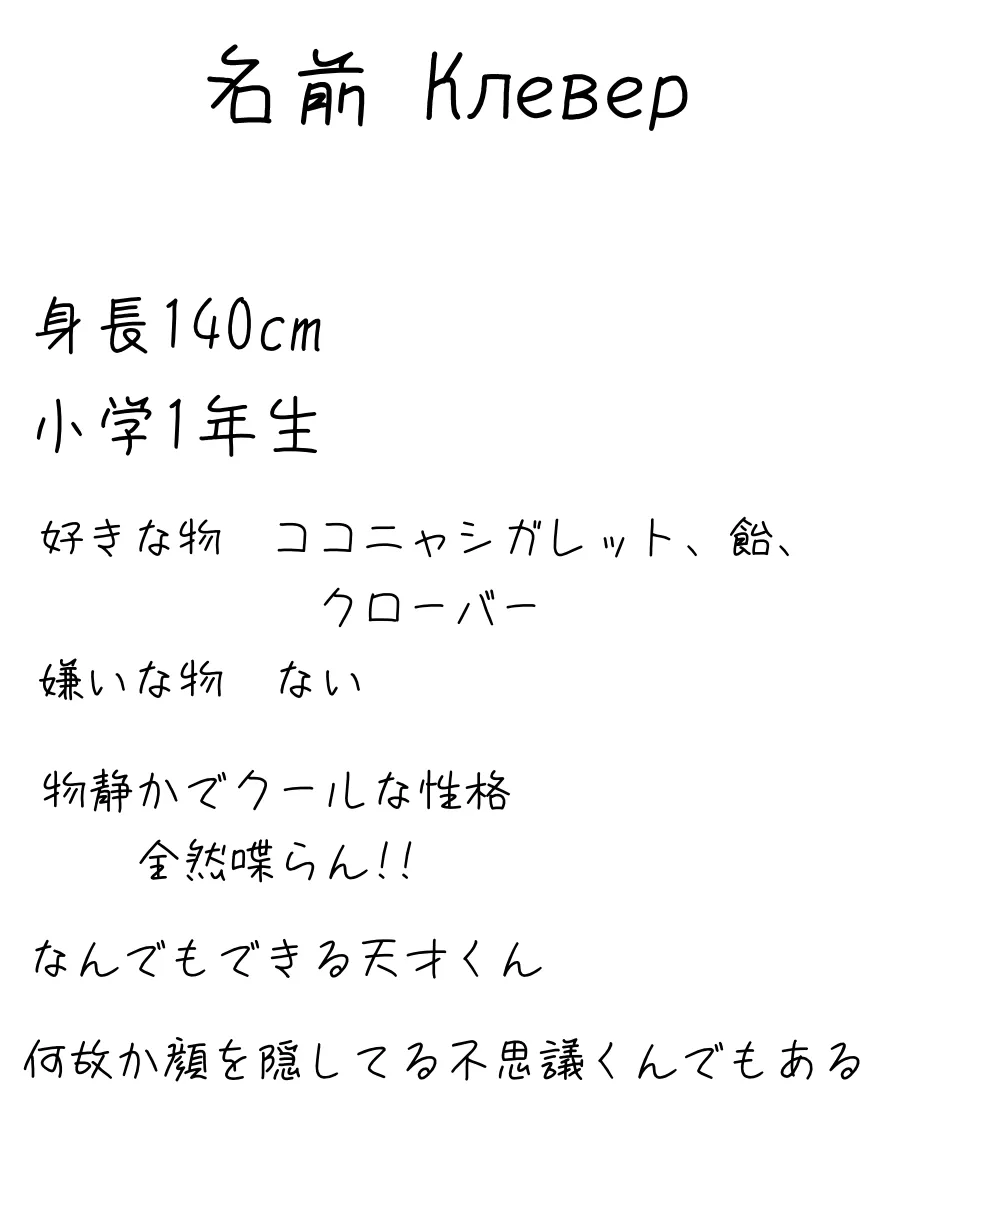 名前 Клевер
身長140cm
小学1年生
好きな物　ココニャシガレット、飴、
クローバー
嫌いな物　ない
物静かでクールな性格
全然喋らん!!
なんでもできる天才くん
何故か顔を隠してる不思議くんでもある